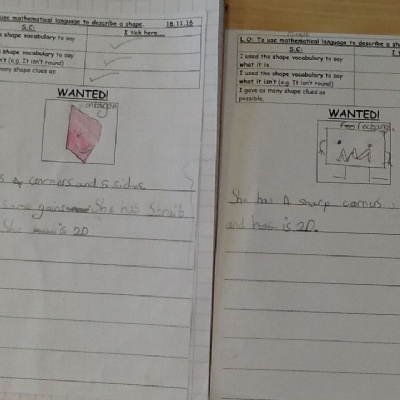 use mathematical language to describe a shape. 18.11.16
S.C: I tick here...
shape vocabulary to say
shape vocabulary to say
isn't (e.g. It isn't round)
many shape clues as
WANTED!
corners and 5 sides
She has Strait
She is 2D
L.O: To use mathematical language to describe a sha
S.C: I
I used the shape vocabulary to say
what it is
I used the shape vocabulary to say
what it isn't (e.g. It isn't round)
I gave as many shape clues as
possible.
WANTED!
She has 4 sharp corners
and is 2D.